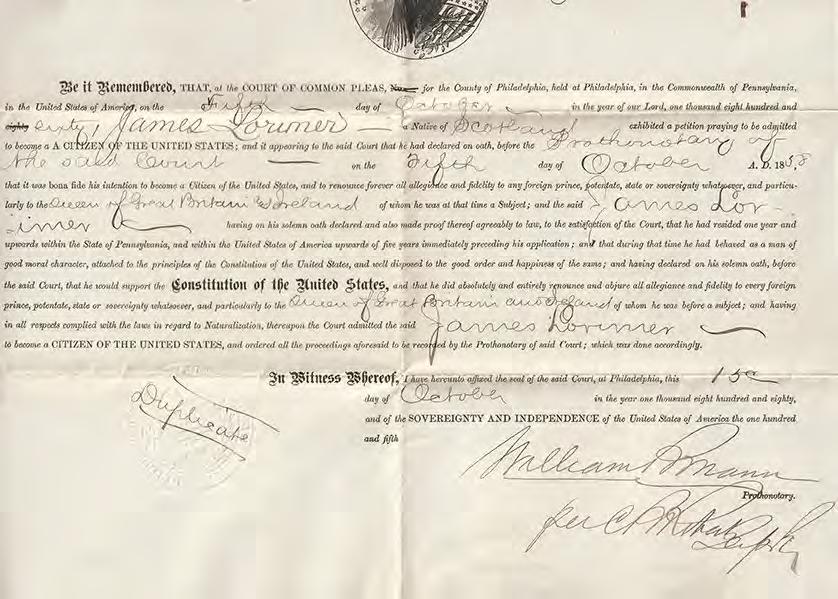 Be it Remembered, THAT, at the COURT OF COMMON PLEAS, No. for the County of Philadelphia, held at Philadelphia, in the Commonwealth of Pennsylvania,
in the United States of America, on the Fifth day of October in the year of our Lord, one thousand eight hundred and
eighty sixty, James Lorimer a Native of Scotland exhibited a petition praying to be admitted
to become a CITIZEN OF THE UNITED STATES; and it appearing to the said Court that he had declared on oath, before the Prothonotary of
the said Court on the Fifth day of October A. D. 1858
that it was bona fide his intention to become a Citizen of the United States, and to renounce forever all allegiance and fidelity to any foreign prince, potentate, state or sovereignty whatsoever, and particu-
larly to the Queen of Great Britain & Ireland of whom he was at that time a Subject; and the said James Lor-
imer having on his solemn oath declared and also made proof thereof agreeably to law, to the satisfaction of the Court, that he had resided one year and
upwards within the State of Pennsylvania, and within the United States of America upwards of five years immediately preceding his application; and that during that time he had behaved as a man of
good moral character, attached to the principles of the Constitution of the United States, and well disposed to the good order and happiness of the same; and having declared on his solemn oath, before
the said Court, that he would support the Constitution of the United States, and that he did absolutely and entirely renounce and abjure all allegiance and fidelity to every foreign
prince, potentate, state or sovereignty whatsoever, and particularly to the Queen of Great Britain and Ireland of whom he was before a subject; and having
in all respects complied with the laws in regard to Naturalization, thereupon the Court admitted the said James Lorimer
to become a CITIZEN OF THE UNITED STATES, and ordered all the proceedings aforesaid to be recorded by the Prothonotary of said Court; which was done accordingly.
In Witness Whereof, I have hereunto affixed the seal of the said Court, at Philadelphia, this
Duplicate
day of October in the year one thousand eight hundred and eighty,
and of the SOVEREIGNTY AND INDEPENDENCE of the United States of America the one hundred
and fifth
William B Mann
Prothonotary.
per